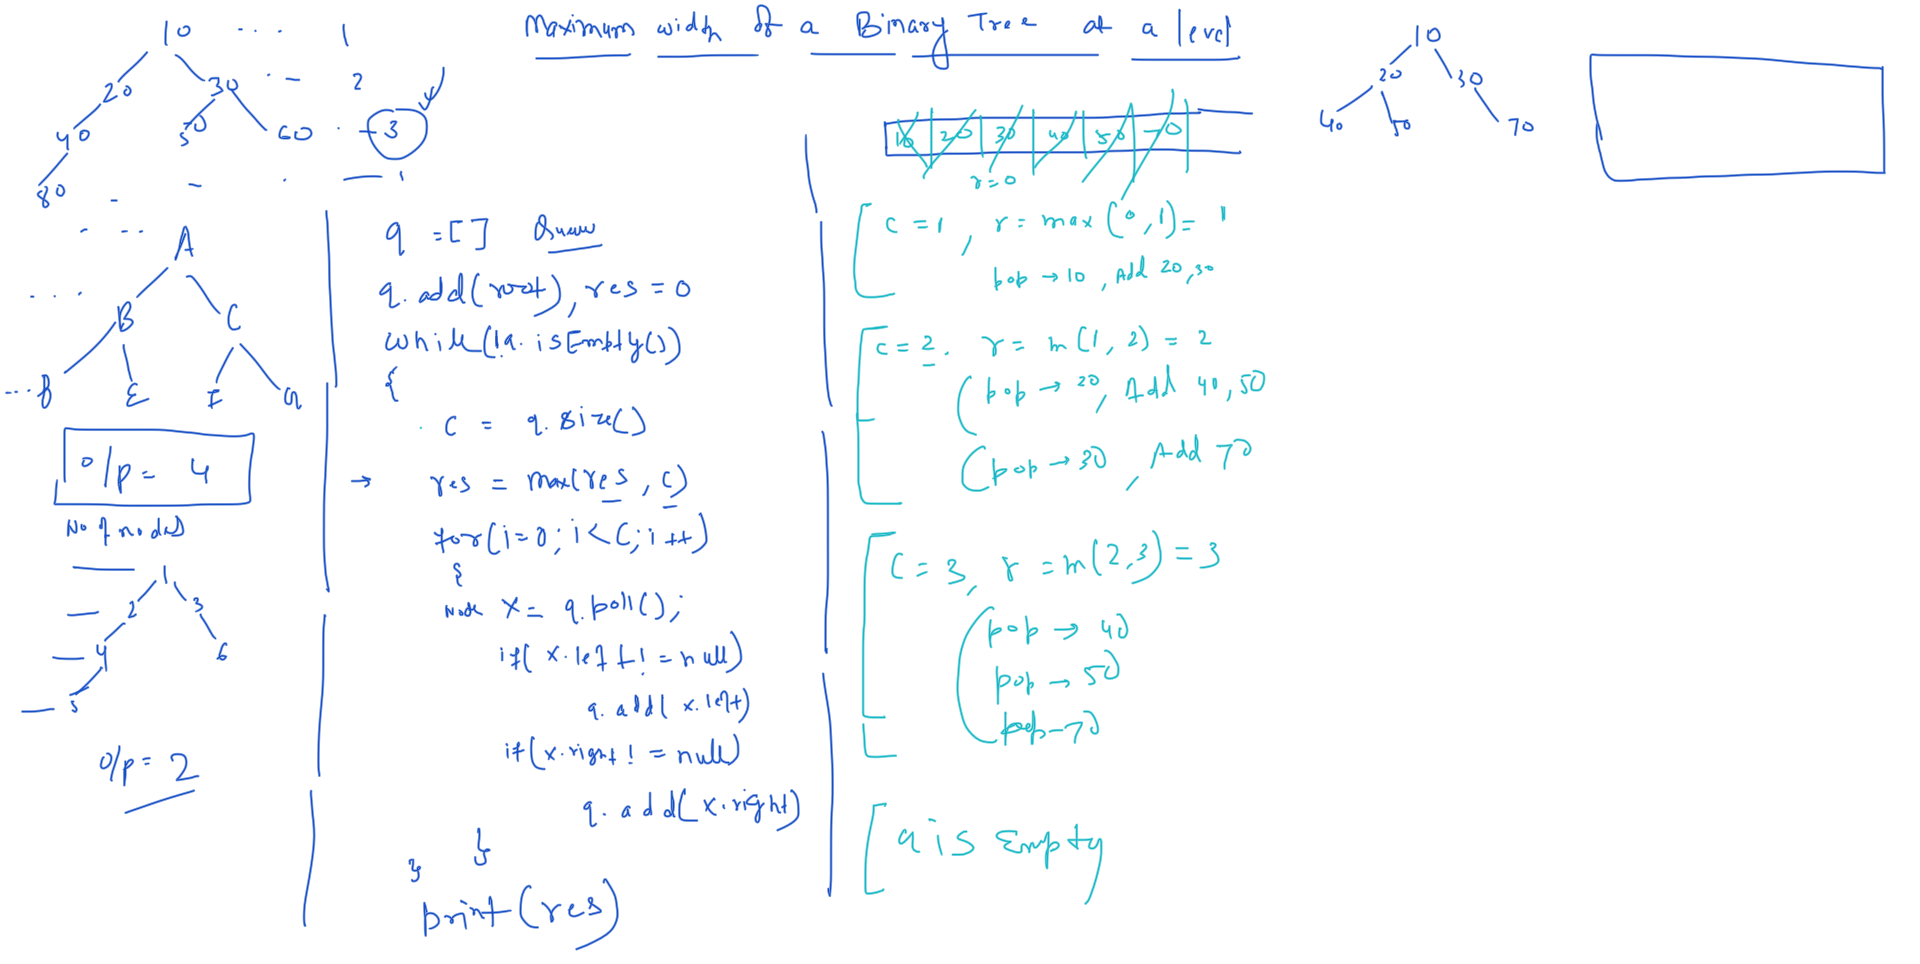 Maximum width of a Binary Tree at a level
10 ... 1
20 30 . - 2
40 50 60 . - 3
80 - - . — 1
A
B C
E F G
o/p = 4
No of nodes
1
2 3
4 6
5
o/p = 2
q = [] Queue
q.add(root), res = 0
while(!q.isEmpty())
{
c = q.size()
→ res = max(res, c)
for(i=0; i<C; i++)
{
Node X = q.poll();
if( x.left != null)
q.add( x.left)
if(x.right != null)
q.add(x.right)
}
}
print(res)
10 20 30 40 50 70
r=0
C = 1, r = max(0,1) = 1
pop → 10, Add 20,30
C = 2. r = m(1, 2) = 2
pop → 20, Add 40,50
pop → 30, Add 70
C = 3, r = m(2,3) = 3
pop → 40
pop → 50
pop - 70
q is Empty
10
20 30
40 50 70